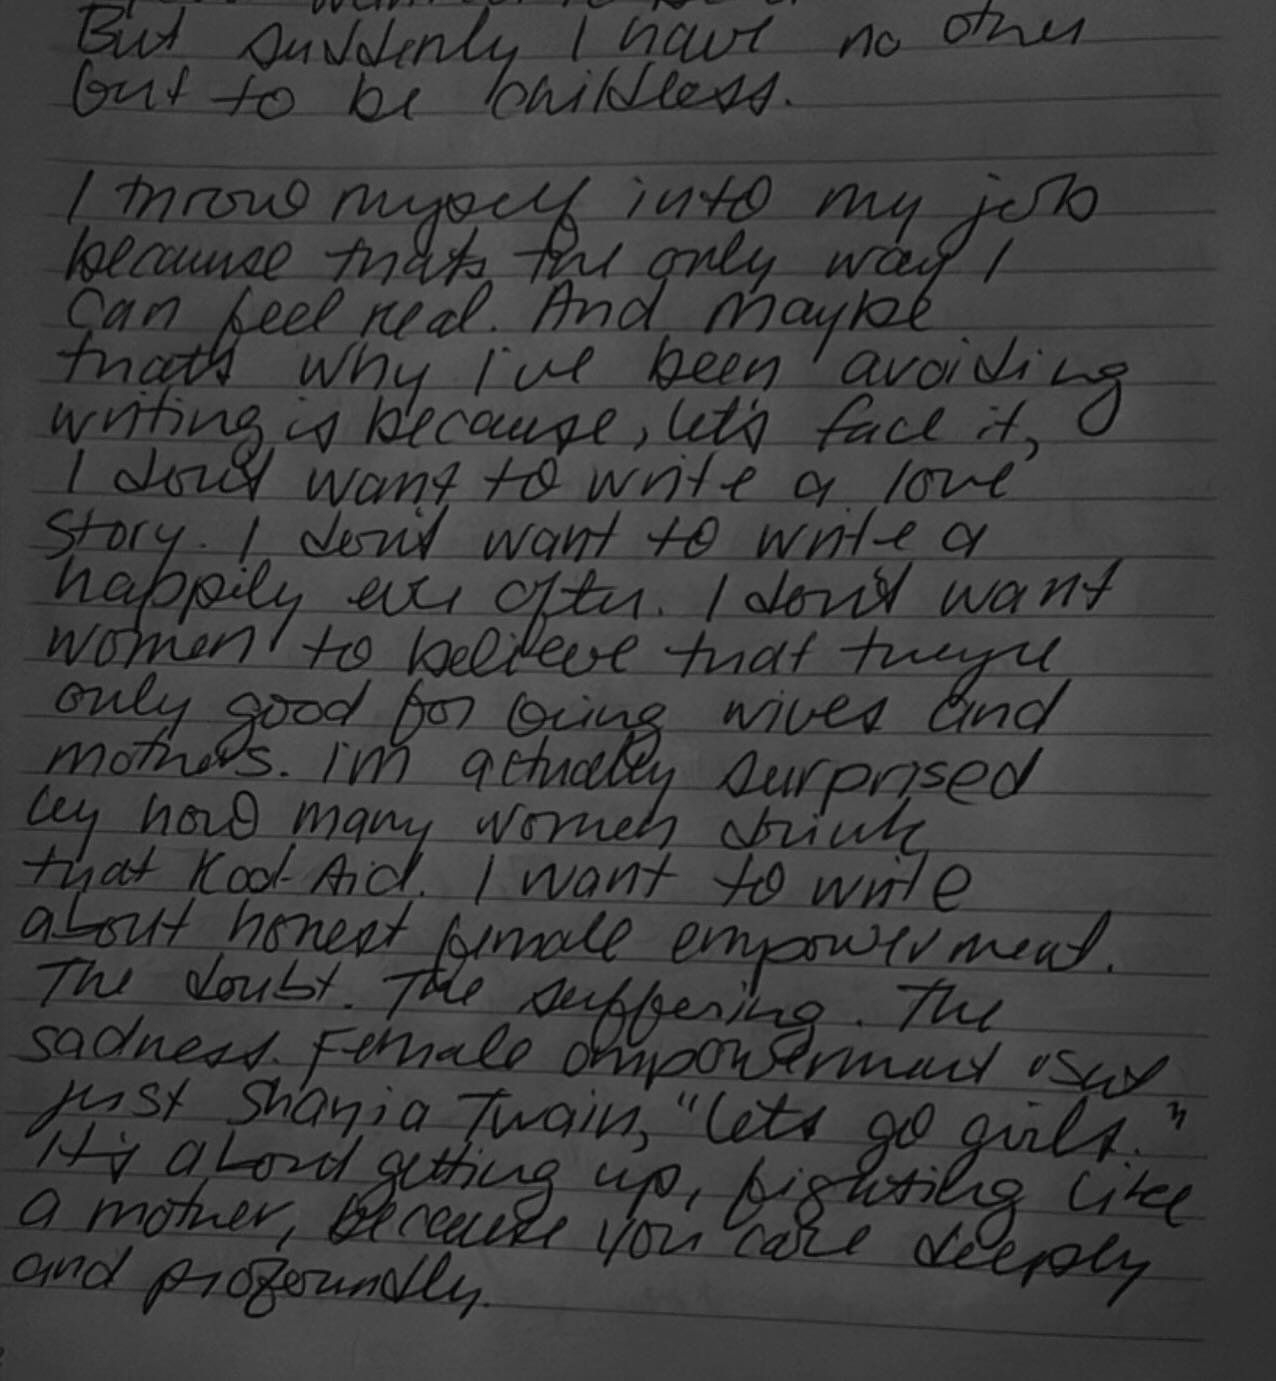 But suddenly I have no other
but to be childless.
I throw myself into my job
because that's the only way I
can feel real. And maybe
that's why I've been avoiding
writing is because, let's face it,
I don't want to write a love
story. I don't want to write a
happily ever after. I don't want
women to believe that they're
only good for being wives and
mothers. I'm actually surprised
by how many women drink
that Kool-Aid. I want to write
about honest female empowerment.
The doubt. The suffering. The
sadness. Female empowerment isn't
just Shania Twain, "Let's go girls."
It's about getting up, fighting like
a mother, because you care deeply
and profoundly.